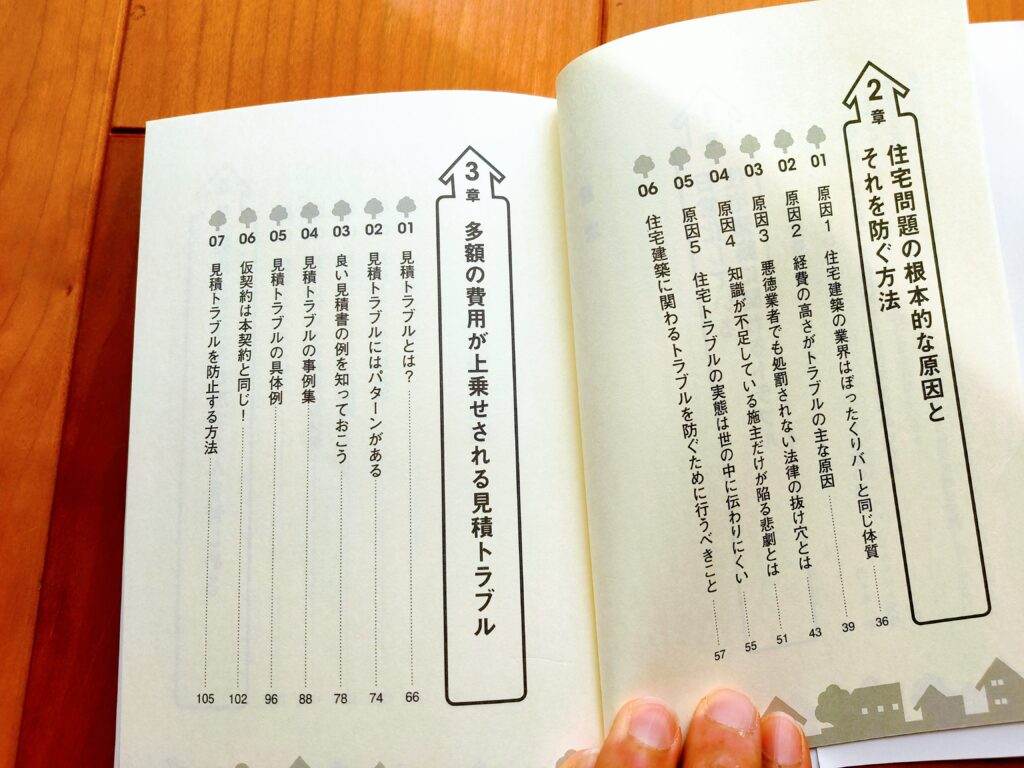 2章
住宅問題の根本的な原因と
それを防ぐ方法
01 原因1 住宅建築の業界はぼったくりバーと同じ体質 36
02 原因2 経費の高さがトラブルの主な原因 39
03 原因3 悪徳業者でも処罰されない法律の抜け穴とは 43
04 原因4 知識が不足している施主だけが陥る悲劇とは 51
05 原因5 住宅トラブルの実態は世の中に伝わりにくい 55
06 住宅建築に関わるトラブルを防ぐために行うべきこと 57
3章
多額の費用が上乗せされる見積トラブル
01 見積トラブルとは？ 66
02 見積トラブルにはパターンがある 74
03 良い見積書の例を知っておこう 78
04 見積トラブルの事例集 88
05 見積トラブルの具体例 96
06 仮契約は本契約と同じ！ 102
07 見積トラブルを防止する方法 105